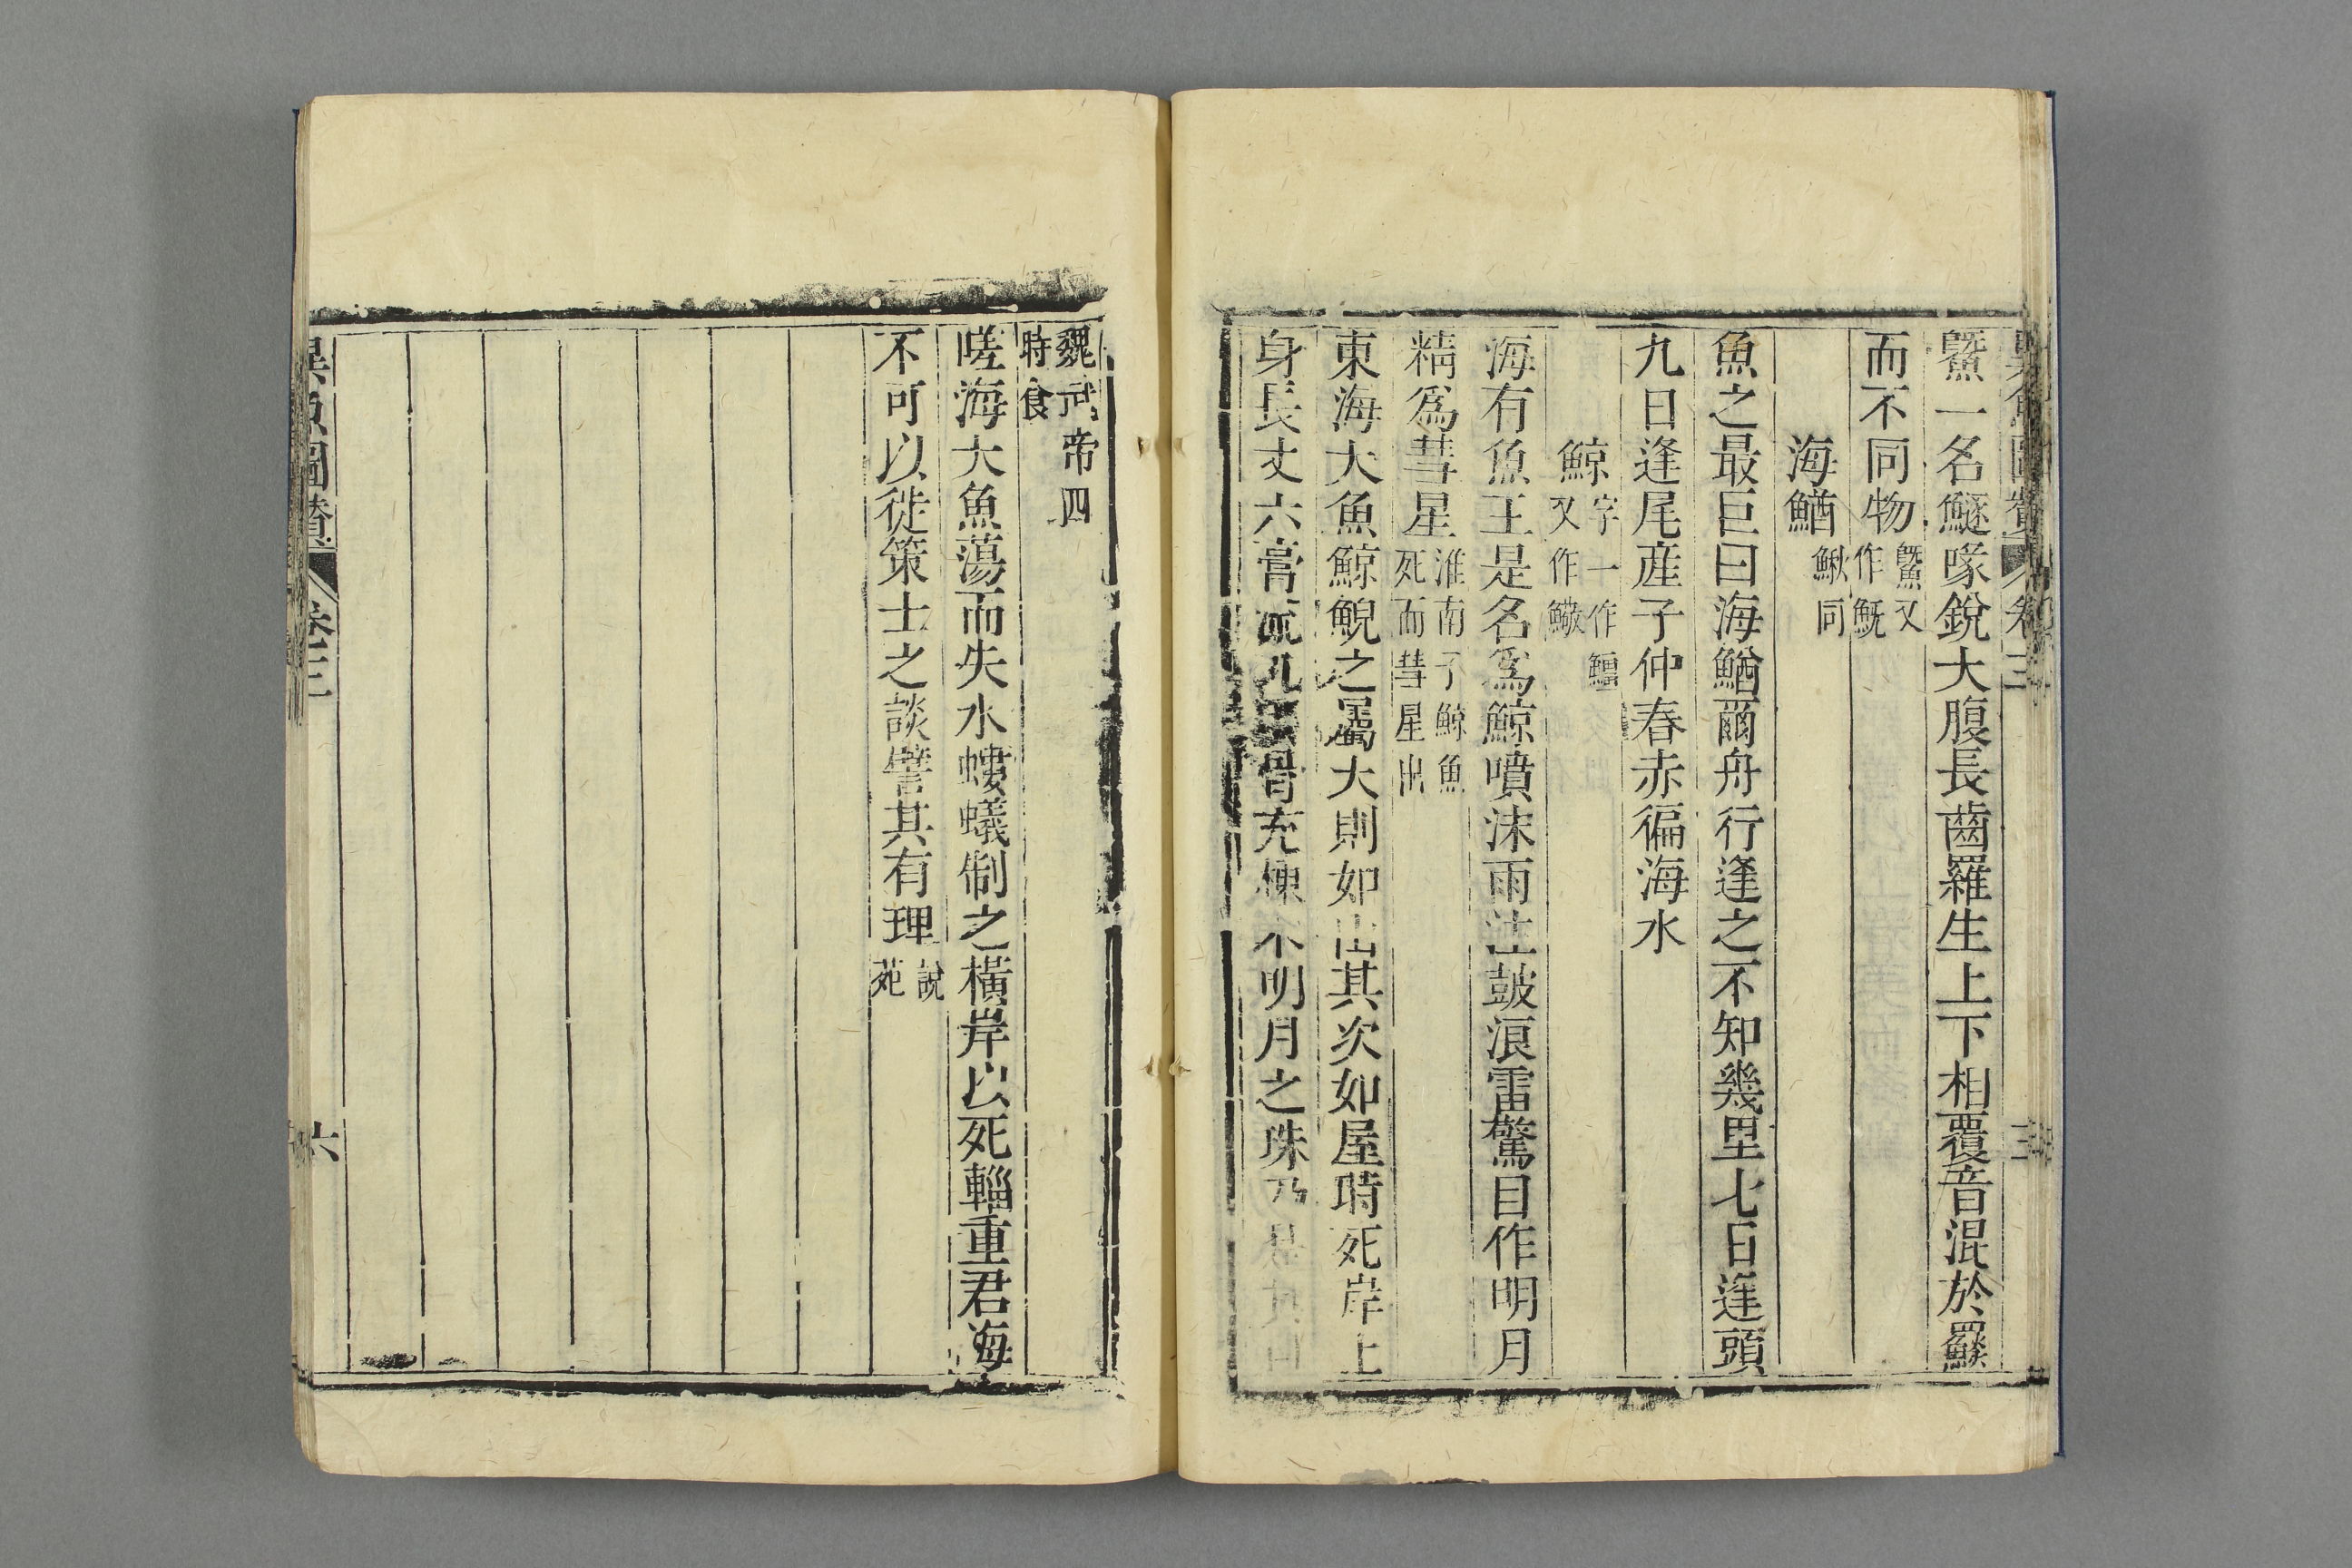 異魚圖贊 卷三 三
鱀一名𩺊喙銳大腹長齒羅生上下相覆音混於𩼪
而不同物鱀又作鱾
海鰌鰍同
魚之最巨曰海鰌爾舟行逢之不知幾里七日逢頭
九日逢尾産子仲春赤徧海水
鯨字一作䲔又作
海有魚王是名爲鯨噴沫雨注鼓浪雷驚目作明月
精爲彗星淮南子鯨魚死而彗星出
東海大魚鯨鯢之屬大則如山其次如屋時死岸上
身長丈六膏流九頃骨充棟木明月之珠乃
魏武帝四時食
嗟海大魚蕩而失水螻蟻制之橫岸以死輜重君海
不可以徙策士之談譬其有理說苑
異魚圖贊 卷三 六